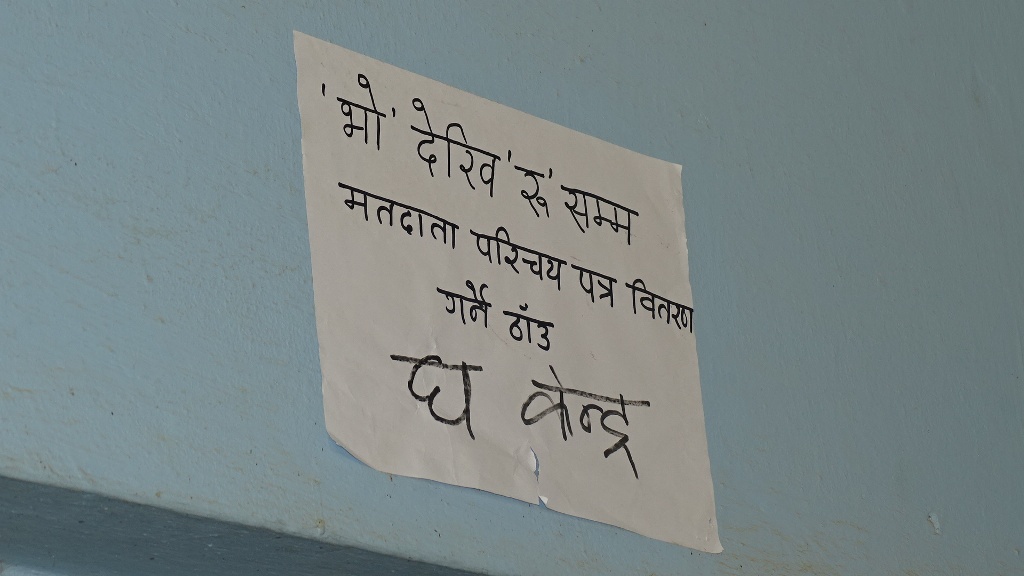 'भो' देखि 'रू' सम्म
मतदाता परिचय पत्र वितरण
गर्ने ठाँउ
घ केन्द्र